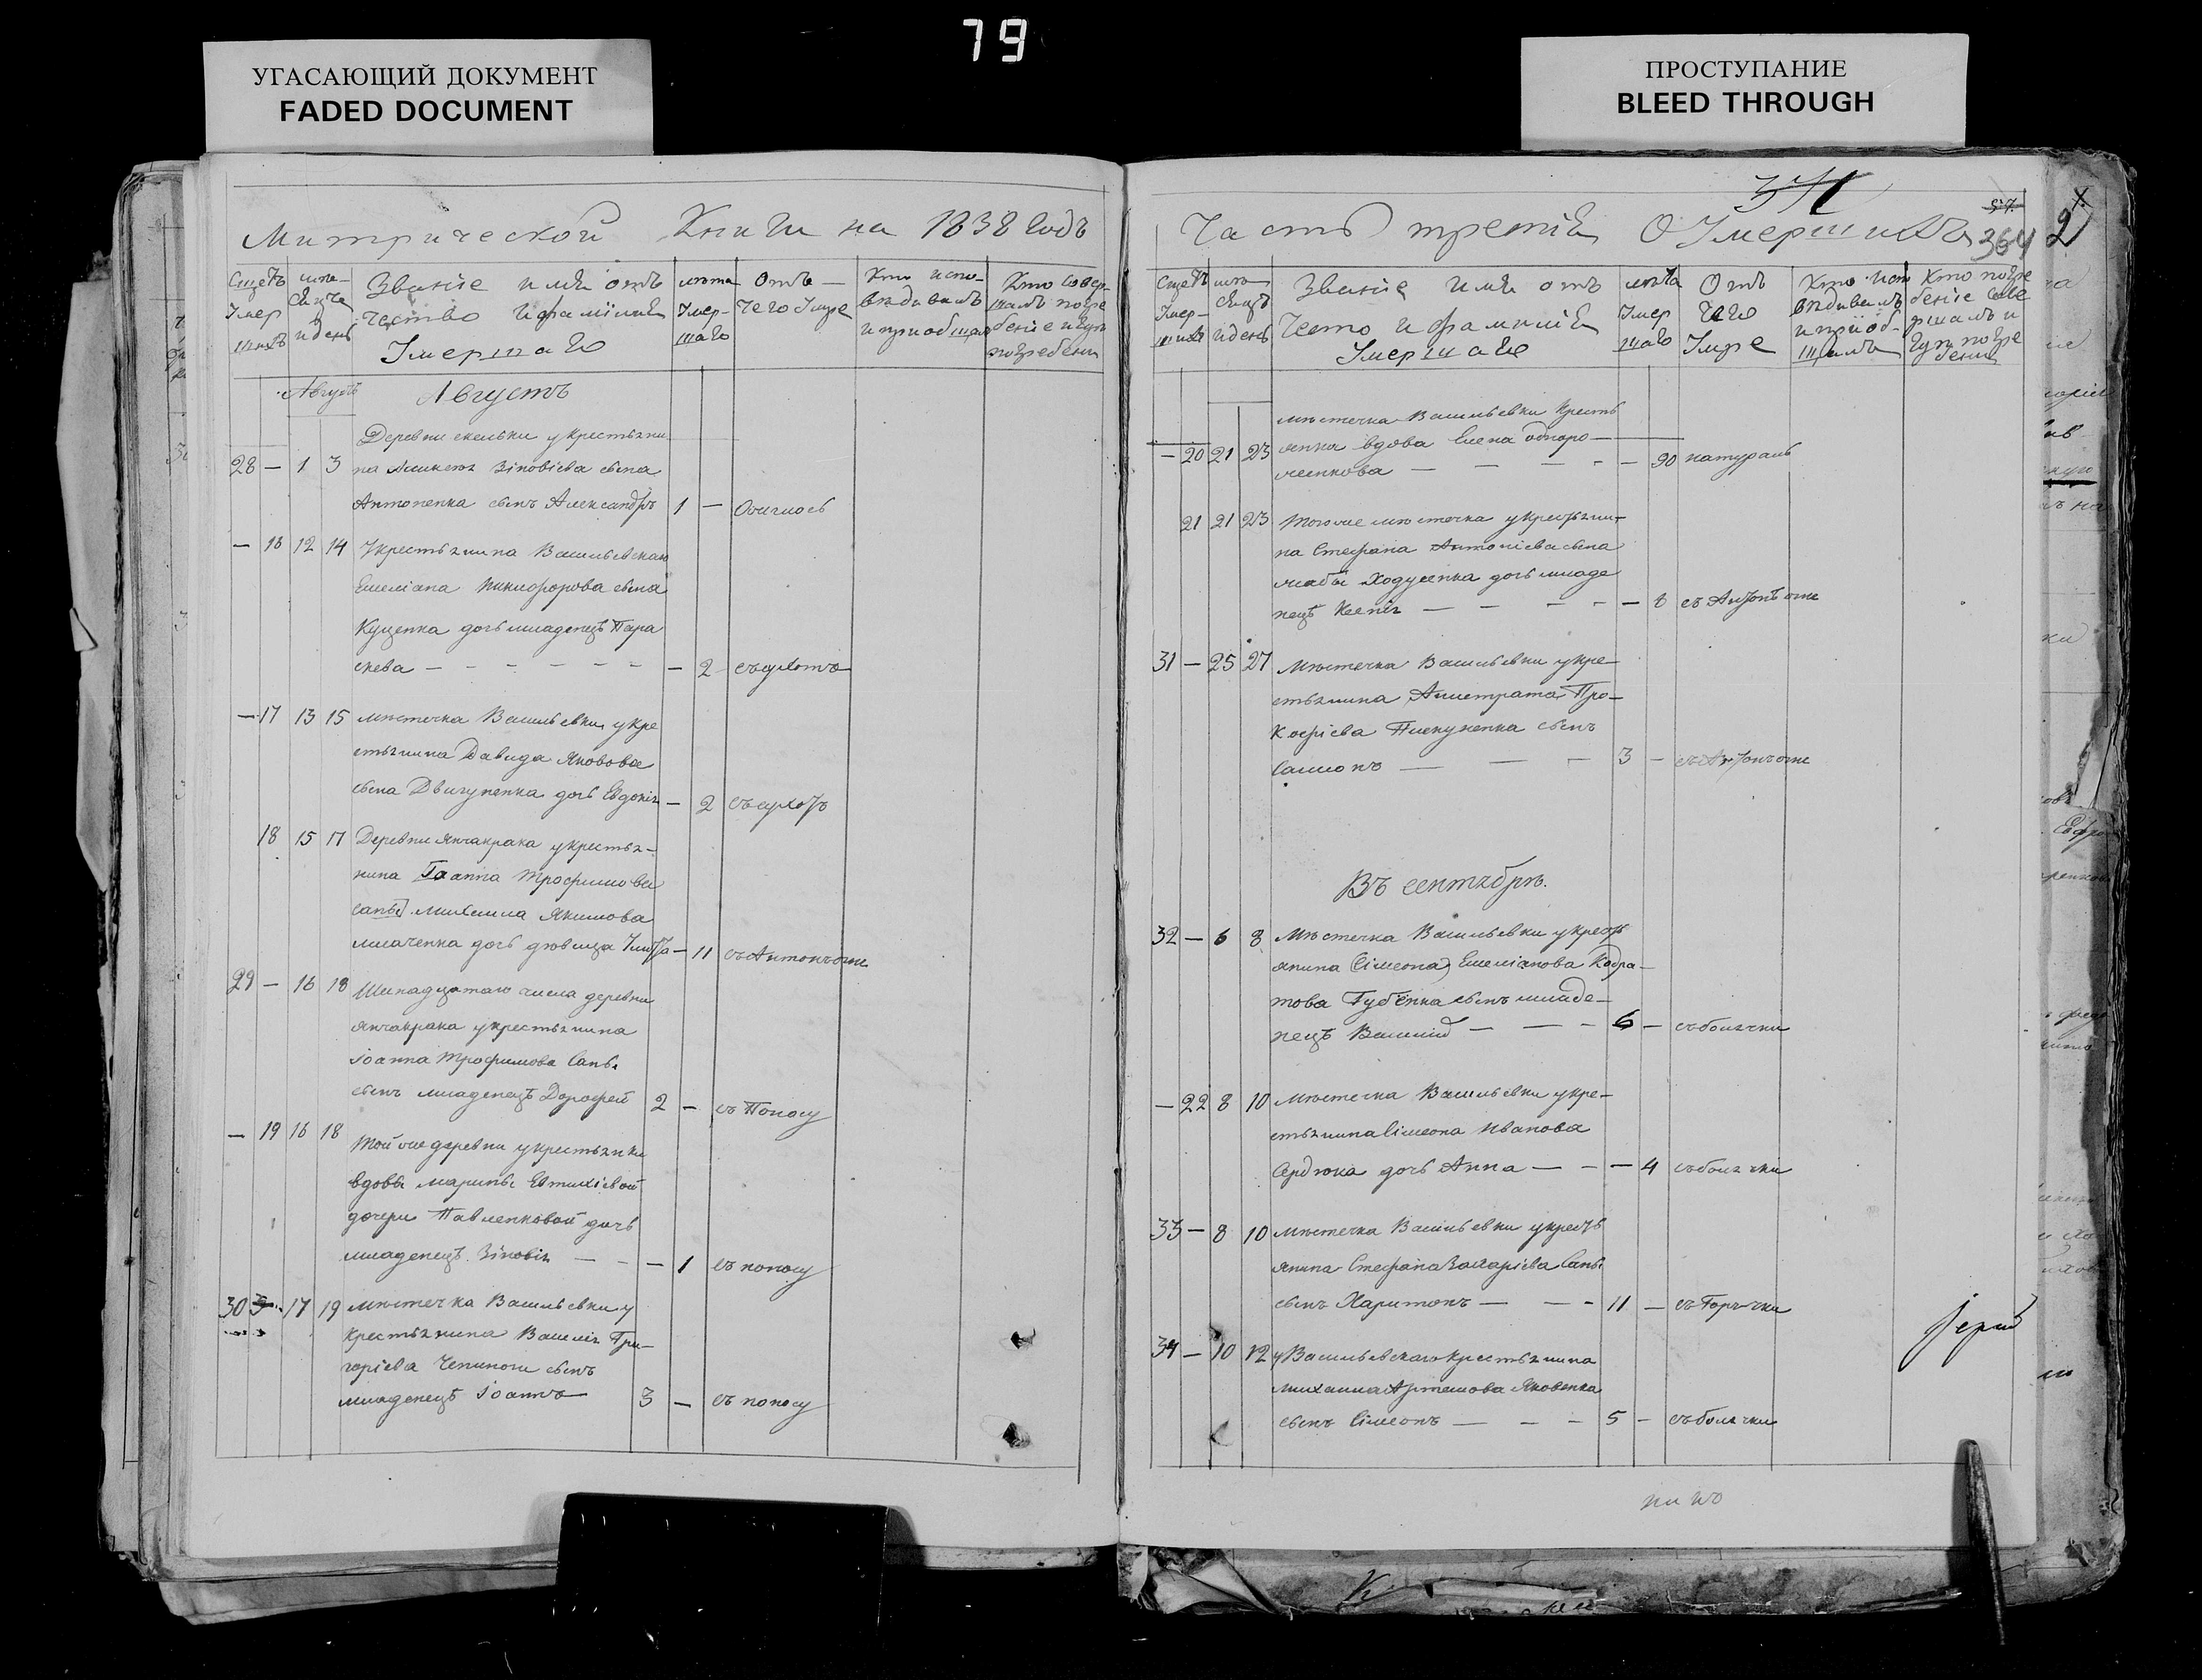 79
УГАСАЮЩИЙ ДОКУМЕНТ
FADED DOCUMENT
ПРОСТУПАНИЕ
BLEED THROUGH
Митрической Книги на 1838 Годъ
Счетъ Умер шихъ
Званіе имя отъ чество и фамилия Умершаго
лѣта Умер- шаго
Отъ чего Умре
Кто испо- вѣдывалъ и приобщалъ
Кто совер- шалъ погре беніе и гдѣ погребены
Августъ Августъ
Деревни скельки у крестьяни
28 — 1 3 на Зіновіева сына
Антоненка сынъ Александръ 1 —
— 16 12 14 Укрестьянина Васильевскаго
Емеліана Никифорова сына
Куценка дочь младенецъ Пара
скева — — 2 съсухотъ
— 17 13 15 мѣстечка Васильевки укре
стьянина Давида Яковова
сына Двигуненка дочь Евдокія — 2 съсухотъ
18 15 17 Деревни Янчакрака укрестья-
нина Іоанна Трофимова
Сапы Михаила Якимова
дочь дѣвица — 11 съАнтонъогне
29 — 16 18 Шенадцатаго числа деревни
Янчакрака укрестьянина
Іоанна Трофимова Сапы
сынъ младенецъ Дорофей 2 — съ Поносу
— 19 16 18 Той же деревни укрестьянки
вдовы Марины Евтихіевой
дочери Павленковой дочь
младенецъ Зіновія — — — 1 съ поносу
30 17 19 мѣстечка Васильевки у
Крестьянина Василія Гри-
горіева Чепиноги сынъ
младенецъ Іоаннъ 3 — съ поносу
371
57.
Часть третія О Умершихъ 364
2
Счетъ Умер- шихъ
Званіе имя отъ чество и фамилия Умершаго
лѣта Умер шаго
Отъ чего Умре
Кто исповѣдывалъ и пріоб- щалъ
Кто погре беніе сове ршалъ и гдѣ погре бены
мѣстечка Васильевки Кресть
— 20 21 23 янка вдова Елена
— — — 90 натураль
21 21 23 Тогоже мѣстечка укрестьяни-
на Стефана Антоніева сына
жабы Ходусенка дочь младе
нецъ Ксенія — — — 8 съ Антонъ огне
31 — 25 27 Мѣстечка Васильевки укре-
стьянина Калистрата Про-
кофіева Пискуненка сынъ
Самсонъ — — — 3 — съАнтонъогне
Въ сентябрѣ.
32 — 6 8 Мѣстечка Васильевки укресть
янина Сімеона Емеліанова Кодра-
това Губенка сынъ младе-
нецъ Василій — — 6 — съболячки
— 22 8 10 Мѣстечка Васильевки укре-
стьянина Сімеона Иванова
Сердюка дочь Анна — — — 4 съболячки
33 — 8 10 мѣстечка Васильевки укресть
янина Стефана Захаріева Сапы
сынъ Харитонъ — — 11 — съ Горячки
34 — 10 12 у Васильевскаго крестьянина
Михаила Артемова Яковенка
сынъ Сімеонъ — — 5 — съболячки
Іерей